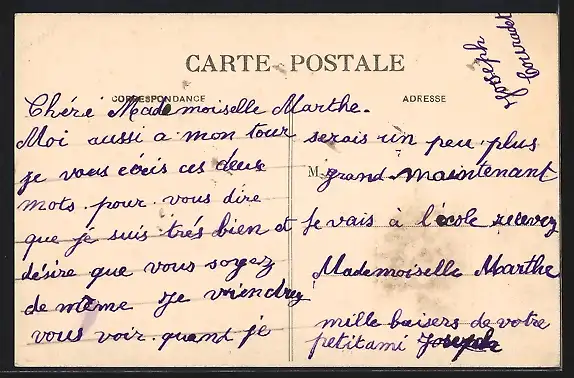 CARTE POSTALE
Joseph
Couradet
CORRESPONDANCE
ADRESSE
Chéré Mademoiselle Marthe.
Moi aussi a mon tour
je vous écris ces deux
mots pour vous dire
que je suis trés bien et
désire que vous soyez
de même Je viendrez
vous voir quand je
serais un peu plus
M grand maintenant
Je vais à l'école recevez
Mademoiselle Marthe
mille baisers de votre
petit ami Joseph